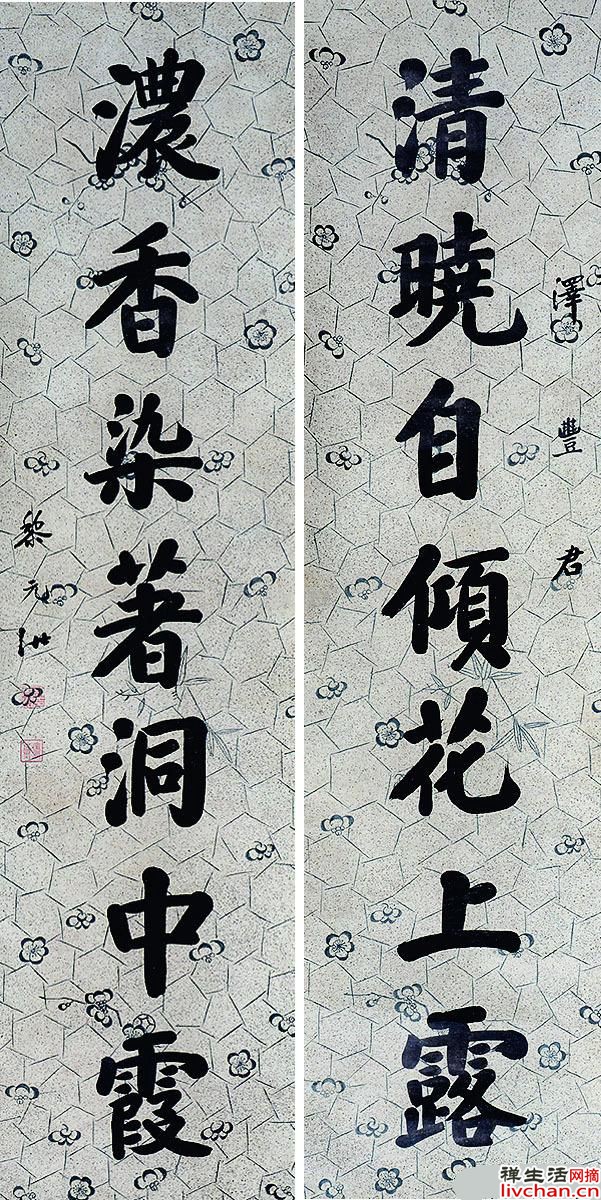 清曉自傾花上露
澤豐君
濃香染著洞中霞
黎元洪
禅生活网摘
livchan.cn